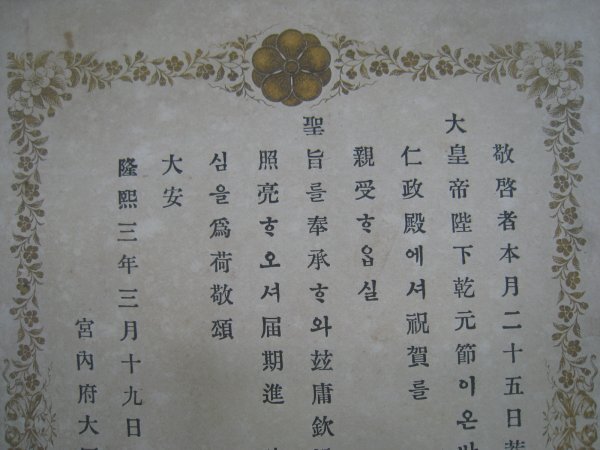 敬啓者本月二十五日
大皇帝陛下乾元節이온
仁政殿에셔祝賀를
親受ᄒᆞᄋᆞᆸ실
聖旨를奉承ᄒᆞ와玆庸欽
照亮ᄒᆞ오셔届期進
심을爲荷敬頌
大安
隆熙三年三月十九日
宮內府大